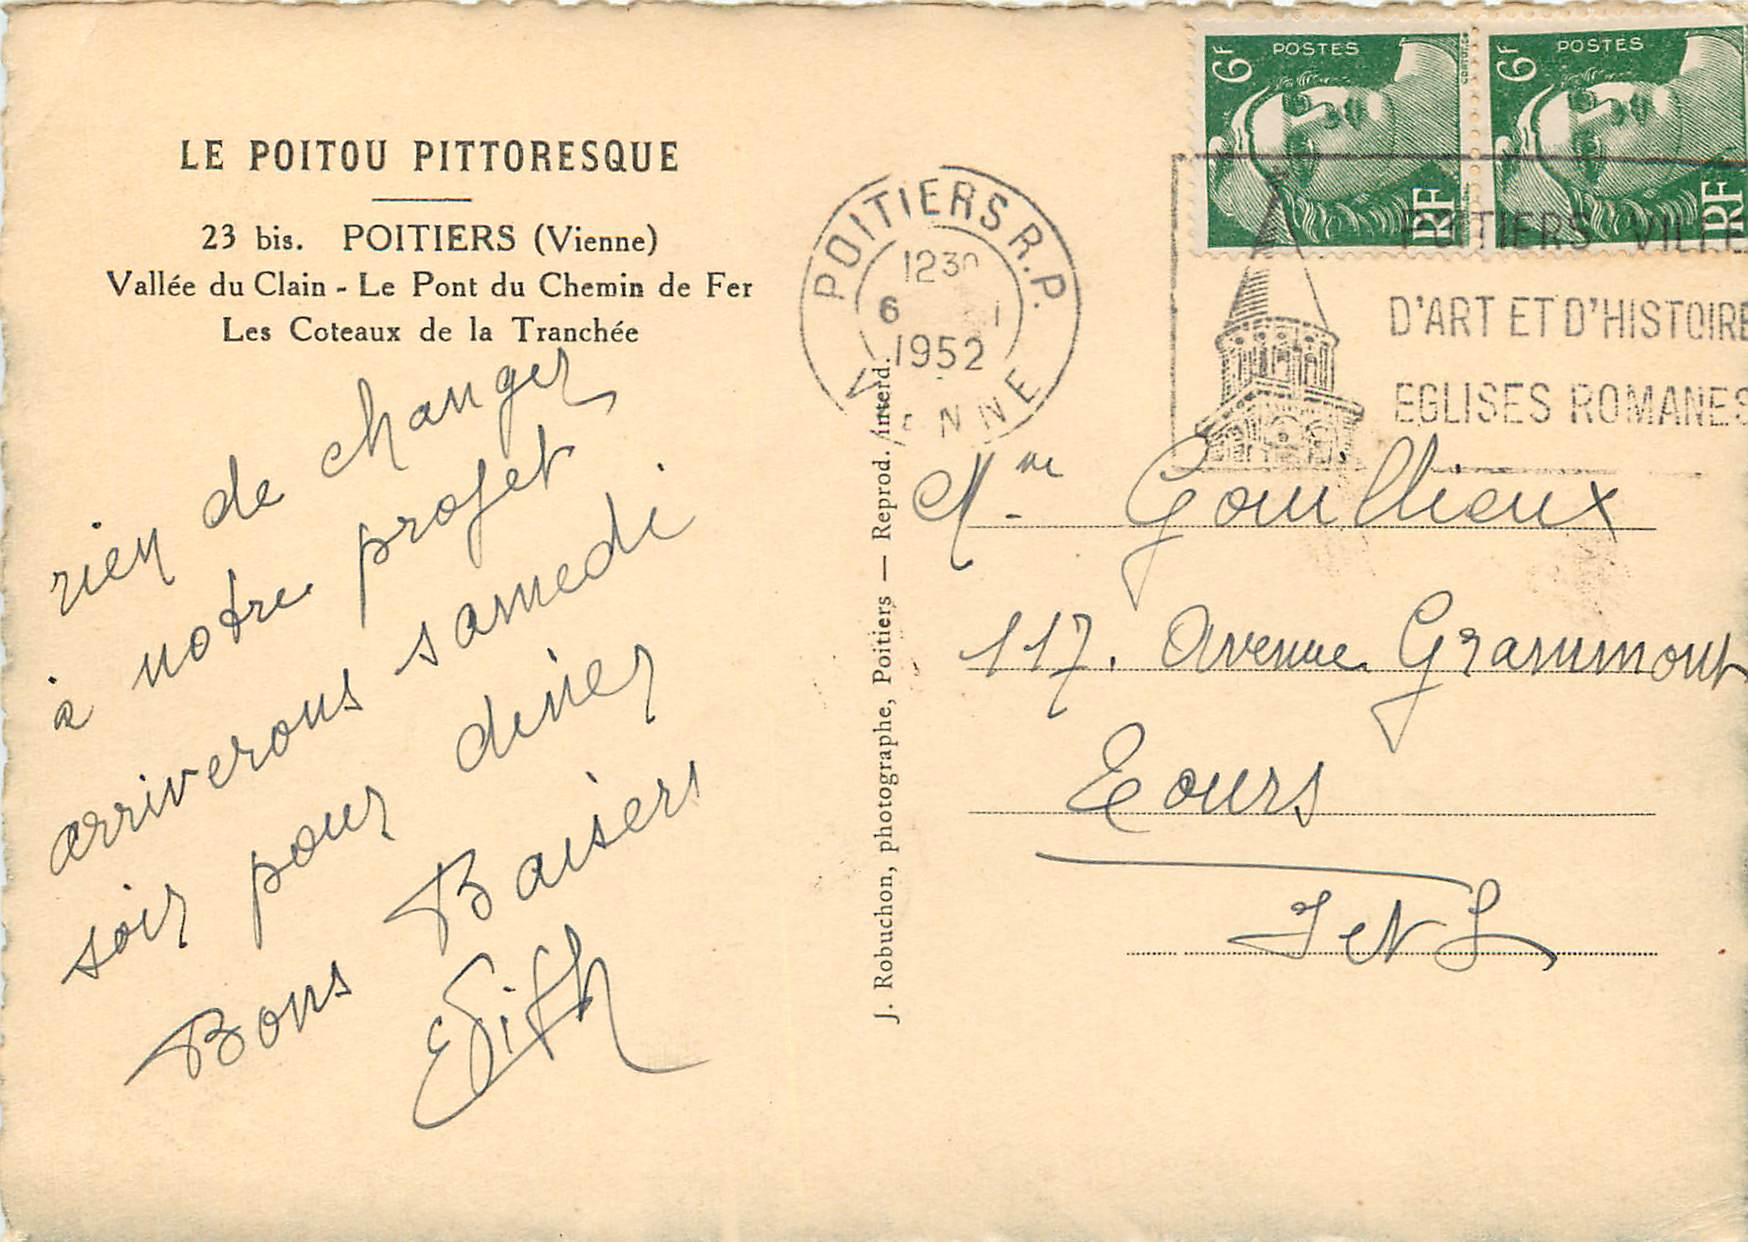 LE POITOU PITTORESQUE
23 bis. POITIERS (Vienne)
Vallée du Clain - Le Pont du Chemin de Fer
Les Coteaux de la Tranchée
rien de changer
à notre projet
arriverons samedi
soir pour diner
Bons Baisers
Edith
J. Robuchon, photographe, Poitiers — Reprod. interd.
POITIERS R.P.
1230
6 1
1952
VIENNE
6F POSTES
RF
6F POSTES
RF
POITIERS VILLE
D'ART ET D'HISTOIRE
EGLISES ROMANES
Mme Gouillieux
117. Avenue Grammont
Tours
I et L